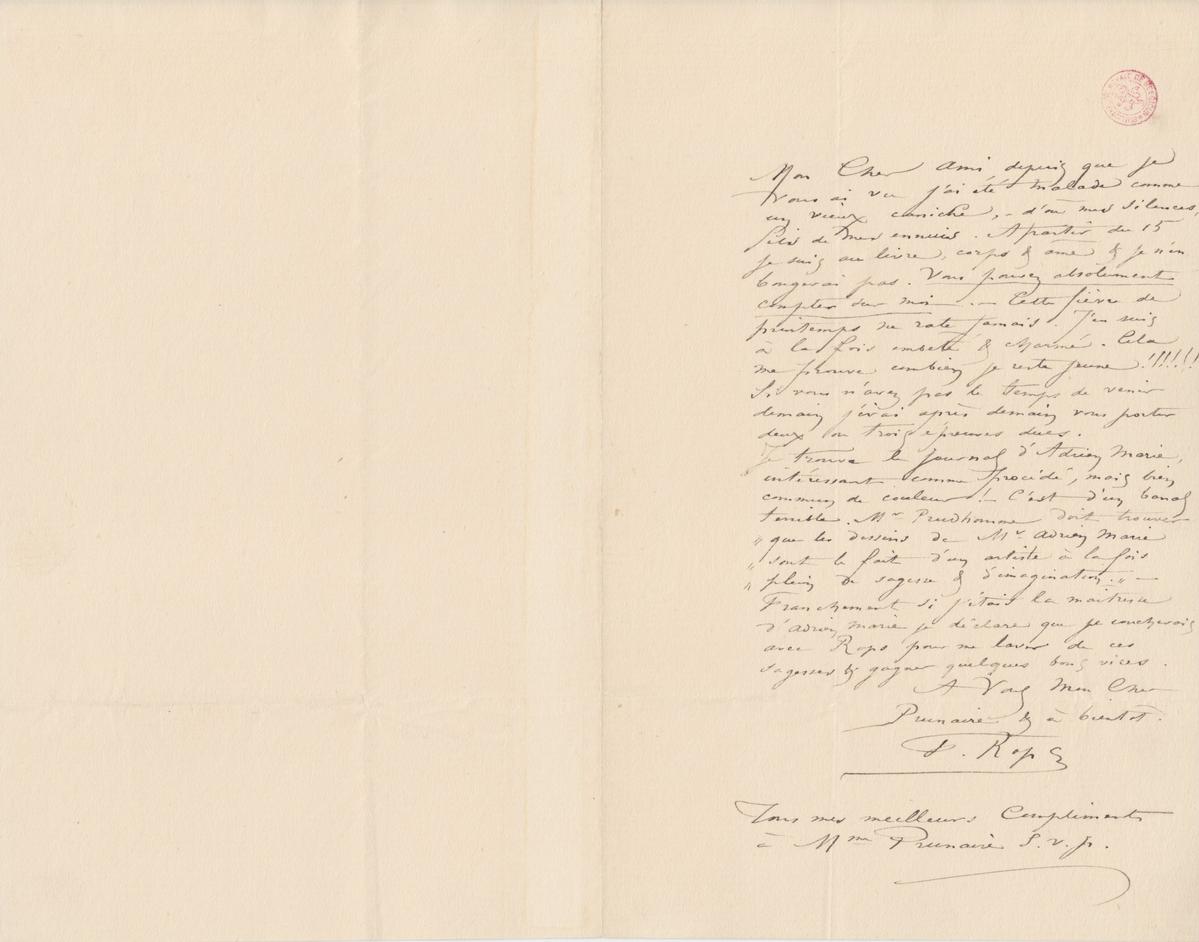 Mon Cher Ami, depuis que je
vous ai vu j'ai été malade comme
un vieux caniche, – d'où mes silences,
de mes ennuis. A partir du 15
je suis au livre, corps & âme & je n'en
bougerai pas. Vous pouvez absolument
compter sur moi. – Cette fièvre de
printemps ne rate jamais. J'en suis
à la fois embêté & charmé. Cela
me prouve combien je reste jeune !!!!!!
Si vous n'avez pas le temps de venir
demain j'irai après demain vous porter
deux ou trois épreuves dues.
Je trouve le journal d'Adrien Marie,
intéressant comme procédé, mais bien
commun de couleur ! – C'est d'un banal
terrible. Mr Prudhomme doit trouver
" que les dessins de Mr Adrien Marie
" sont le fait d'un artiste à la fois
" plein de sagesse & d'imagination. " –
Franchement si j'étais la maitresse
d'Adrien Marie je déclare que je coucherais
avec Rops pour me laver de ces
sagesses & gagner quelques bons vices.
A Vous Mon Cher
Prunaire & à bientôt.
F. Rops
Tous mes meilleurs Compliments
à Mme Prunaire S.v.p.